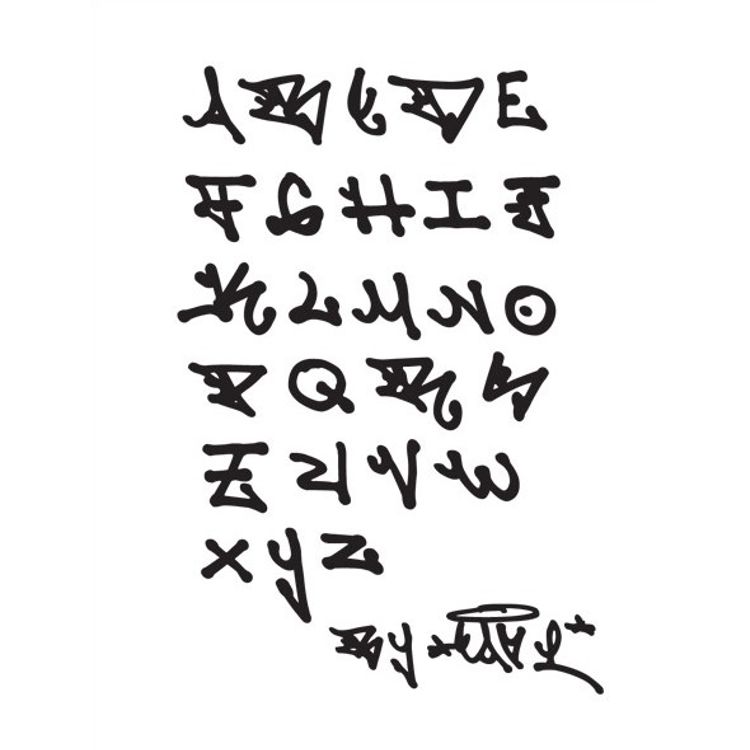 A B C D E
F G H I J
K L M N O
P Q R S
T U V W
X Y Z
By